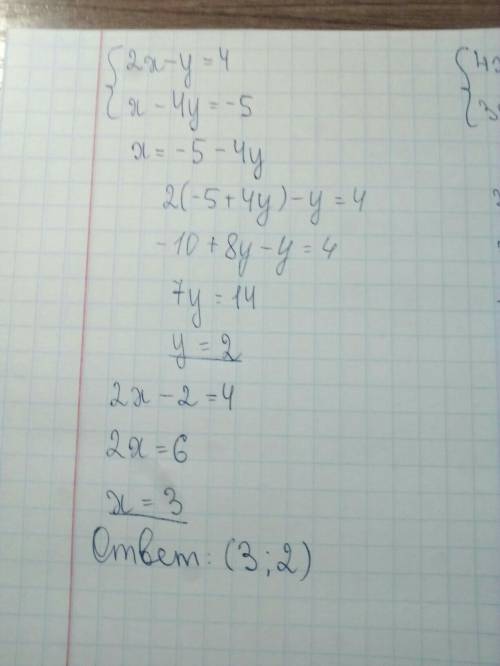 {2x-y=4
{x-4y=-5
x=-5-4y
2(-5+4y)-y=4
-10+8y-y=4
7y=14
y=2
2x-2=4
2x=6
x=3
Ответ: (3;2)